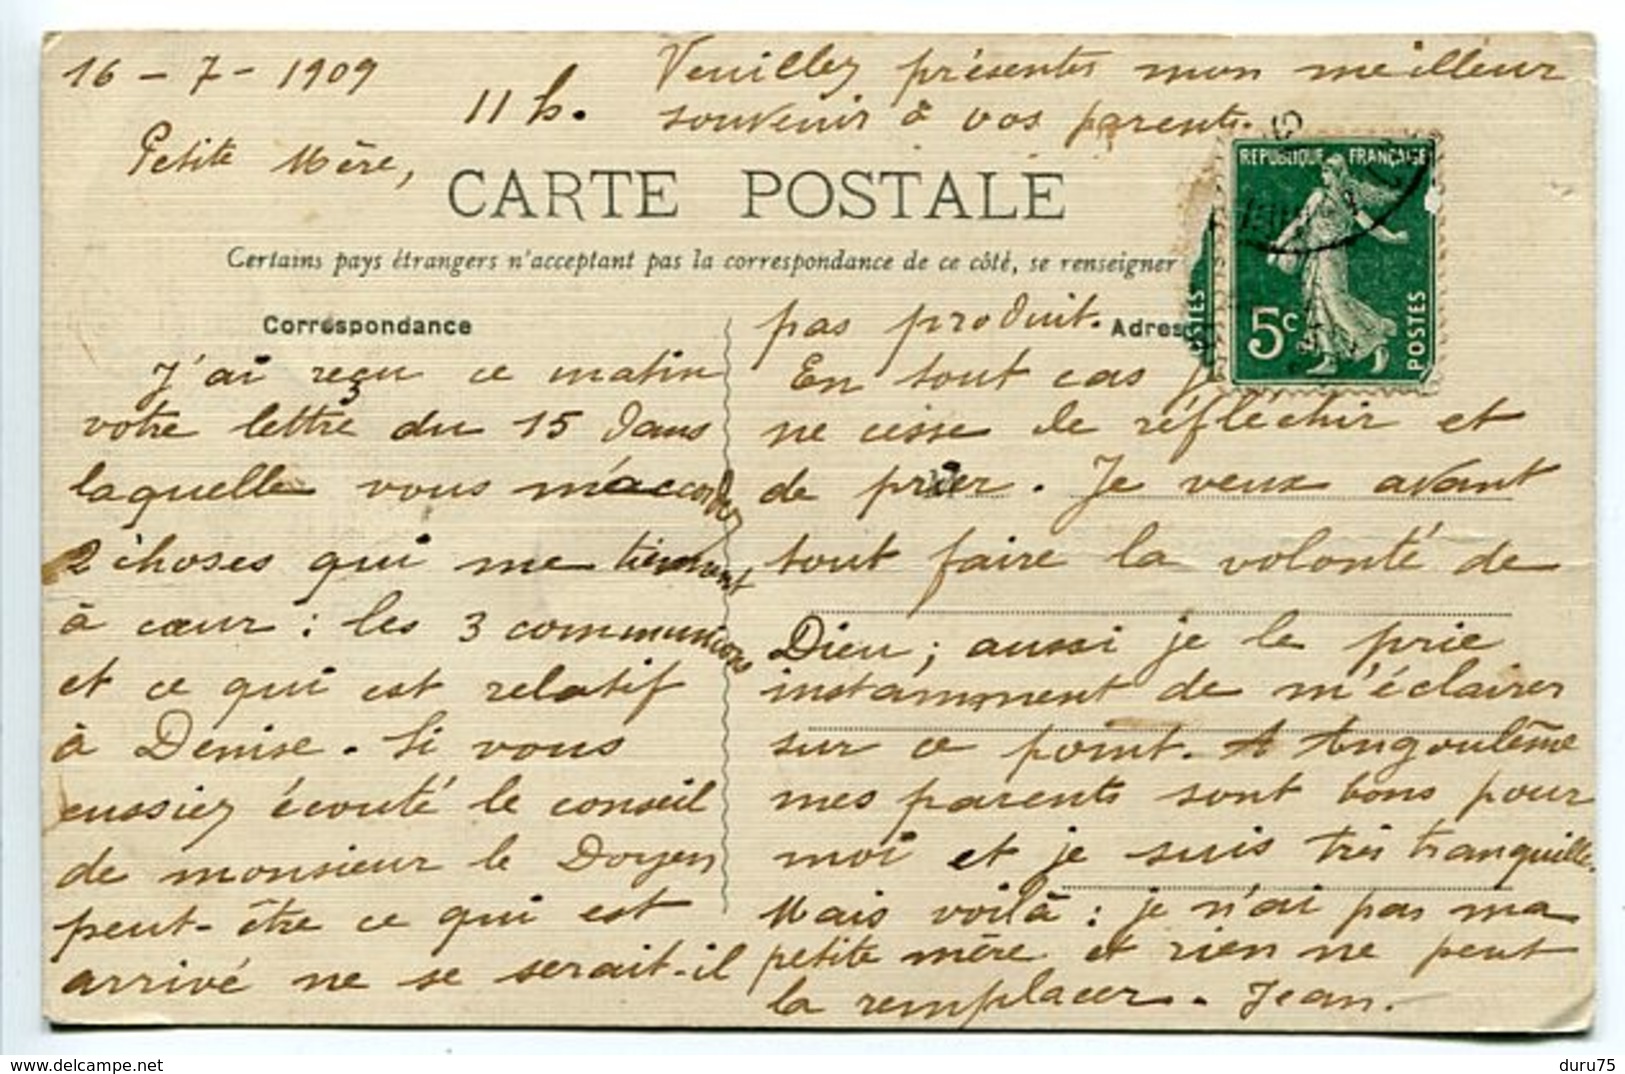 16 - 7 - 1909
11 h.
Veuillez présenter mon meilleur
souvenir à vos parents.
Petite Mère,
CARTE POSTALE
Certains pays étrangers n'acceptant pas la correspondance de ce côté, se renseigner
REPUBLIQUE FRANÇAISE
5c
POSTES
Correspondance
J'ai reçu ce matin
votre lettre du 15 dans
laquelle vous m'accordez
2 choses qui me tiennent
à cœur : les 3 communions
et ce qui est relatif
à Denise. Si vous
eussiez écouté le conseil
de monsieur le Doyen
peut-être ce qui est
arrivé ne se serait-il
Adres
pas produit.
En tout cas je
ne cesse de réfléchir et
de prier. Je veux avant
tout faire la volonté de
Dieu ; aussi je le prie
instamment de m'éclairer
sur ce point. A Angoulême
mes parents sont bons pour
moi et je suis très tranquille.
Mais voilà : je n'ai pas ma
petite mère et rien ne peut
la remplacer. Jean.
delcampe.net
duru75